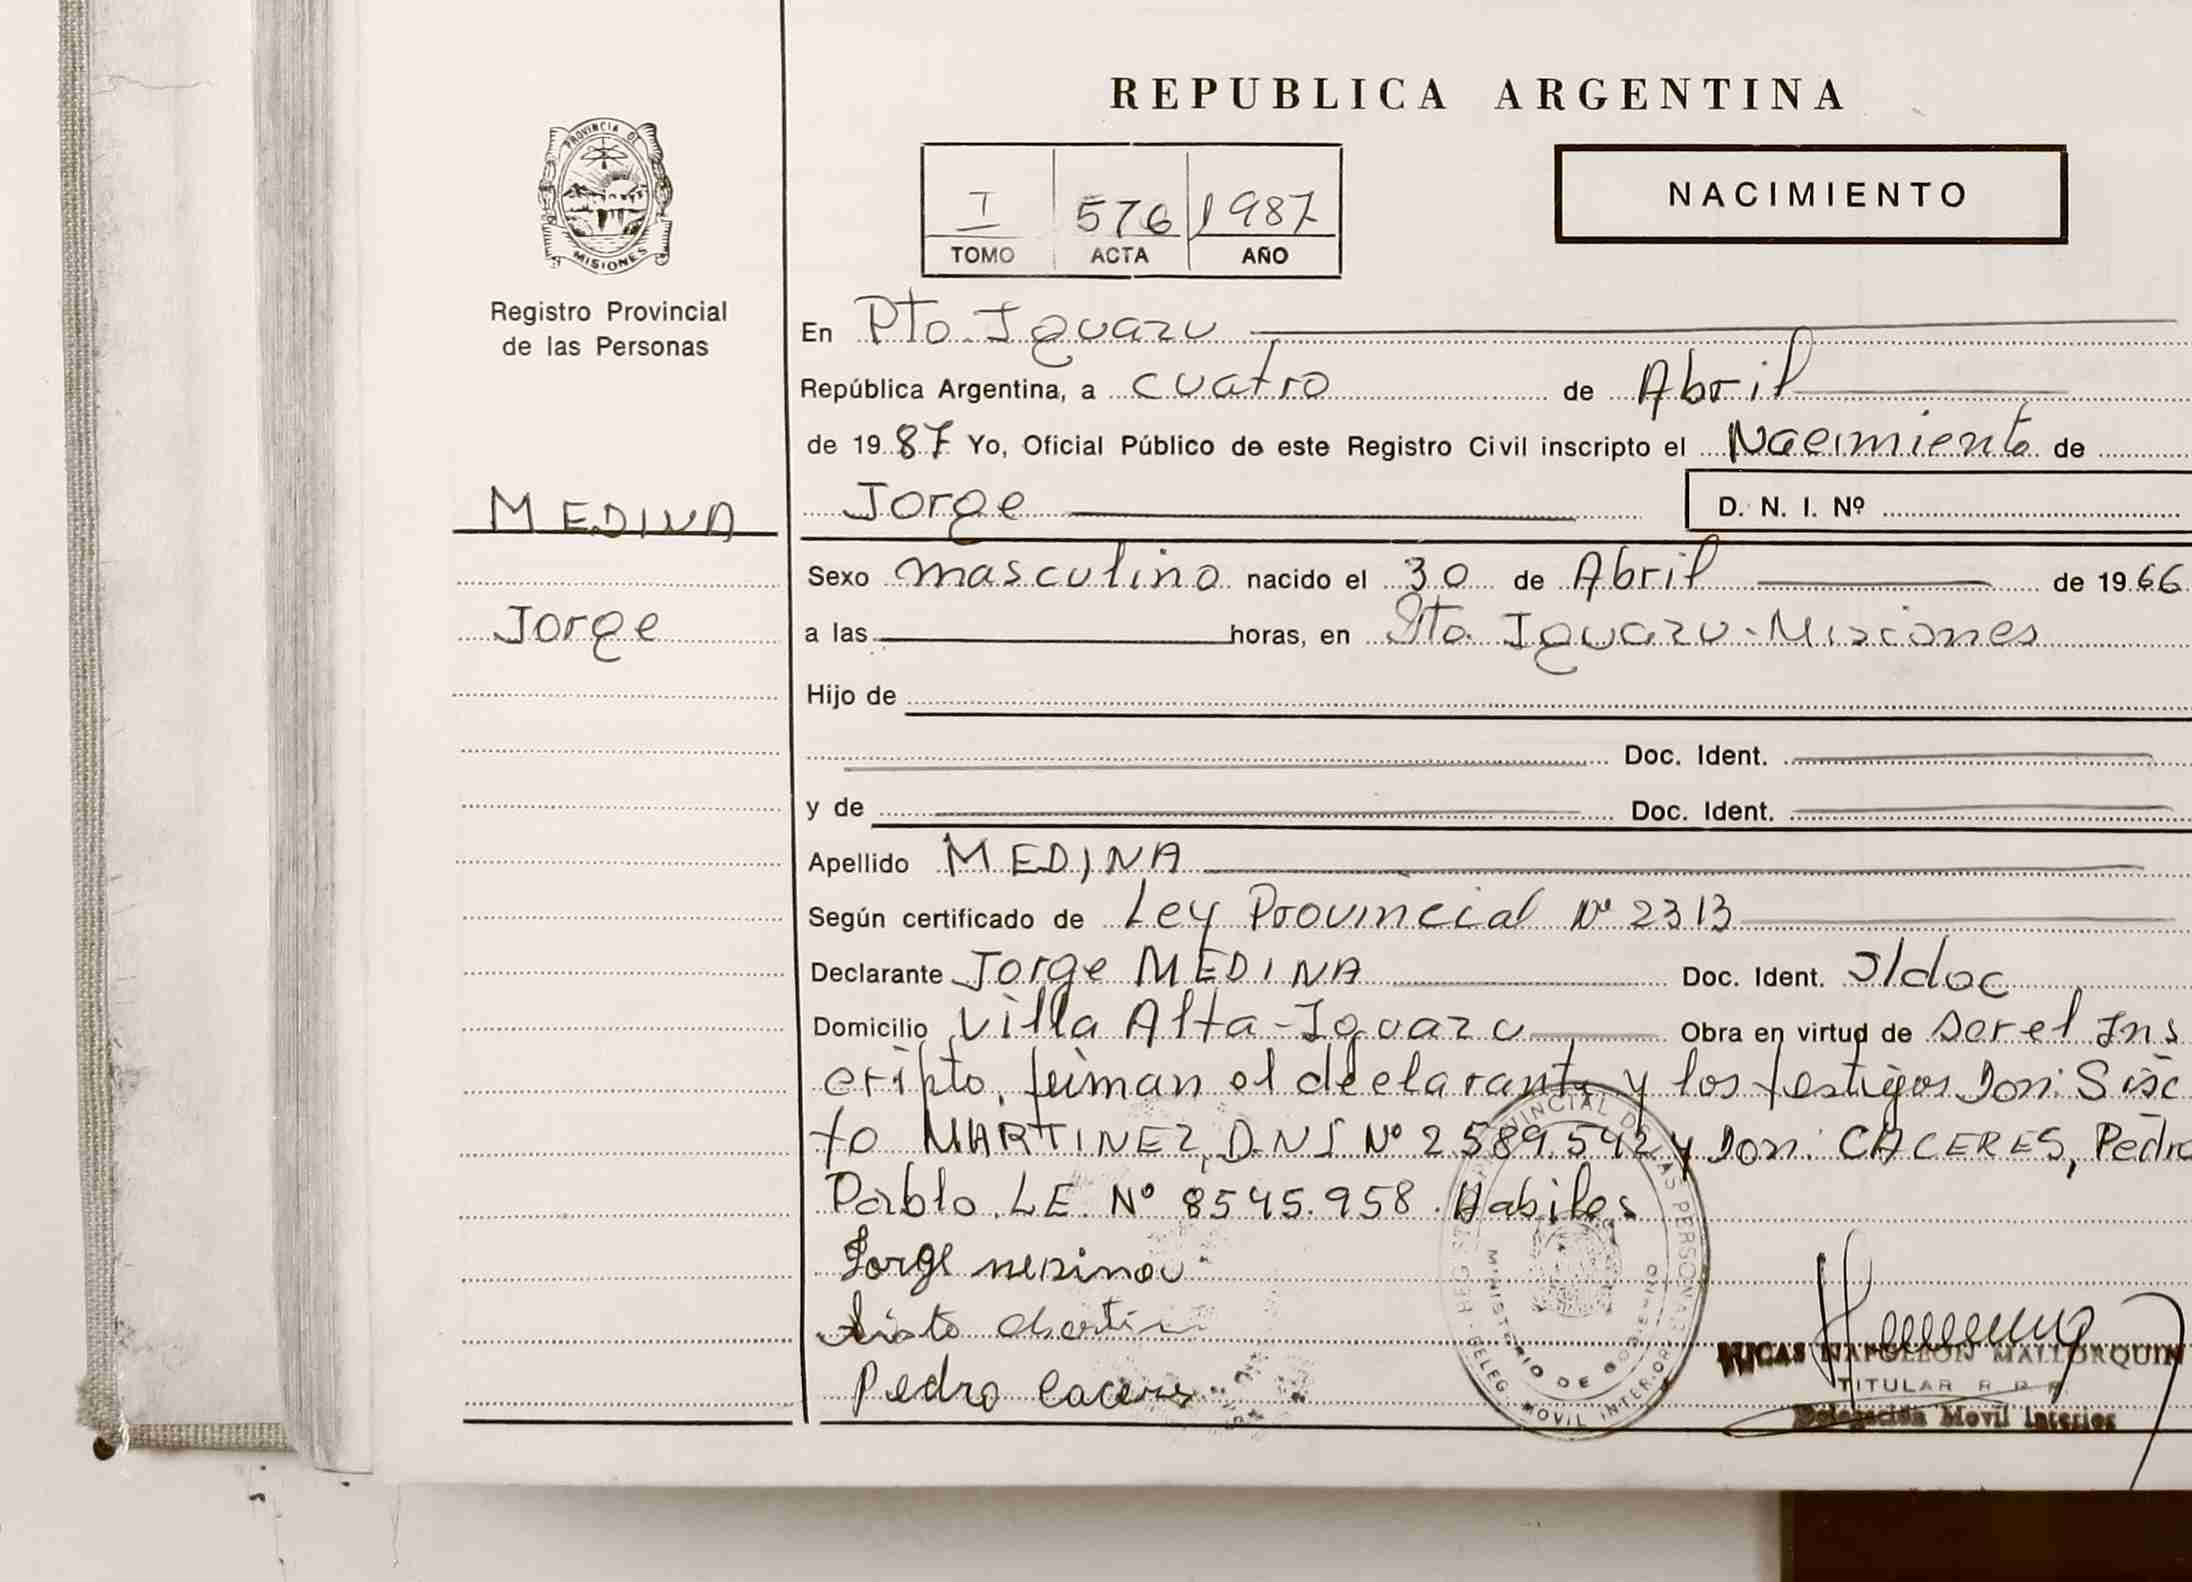 REPUBLICA ARGENTINA
PROVINCIA DE
MISIONES
Registro Provincial
de las Personas
I 576 1987
TOMO ACTA AÑO
NACIMIENTO
MEDINA
Jorge
En Pto. Iguazu
República Argentina, a cuatro de Abril
de 1987 Yo, Oficial Público de este Registro Civil inscripto el Nacimiento de
Jorge D. N. I. Nº
Sexo masculino nacido el 30 de Abril de 1966
a las horas, en Pto. Iguazu - Misiones
Hijo de
Doc. Ident.
y de Doc. Ident.
Apellido MEDINA
Según certificado de Ley Provincial Nº 2313
Declarante Jorge MEDINA Doc. Ident. s/doc
Domicilio Villa Alta - Iguazu Obra en virtud de ser el Ins
cripto, firman el declarante y los testigos Don: Sisc
to MARTINEZ, D.N.I. Nº 2.589.542 y Don: CACERES, Pedro
Pablo. L.E. Nº 8545.958. Habiles
Jorge
Pedro Caceres
PROVINCIAL DE LAS PERSONAS
MINISTERIO DE GOBIERNO
DELEG. MOVIL INTERIOR
NAPOLEON MALLORQUIN
TITULAR
Delegación Movil Interior